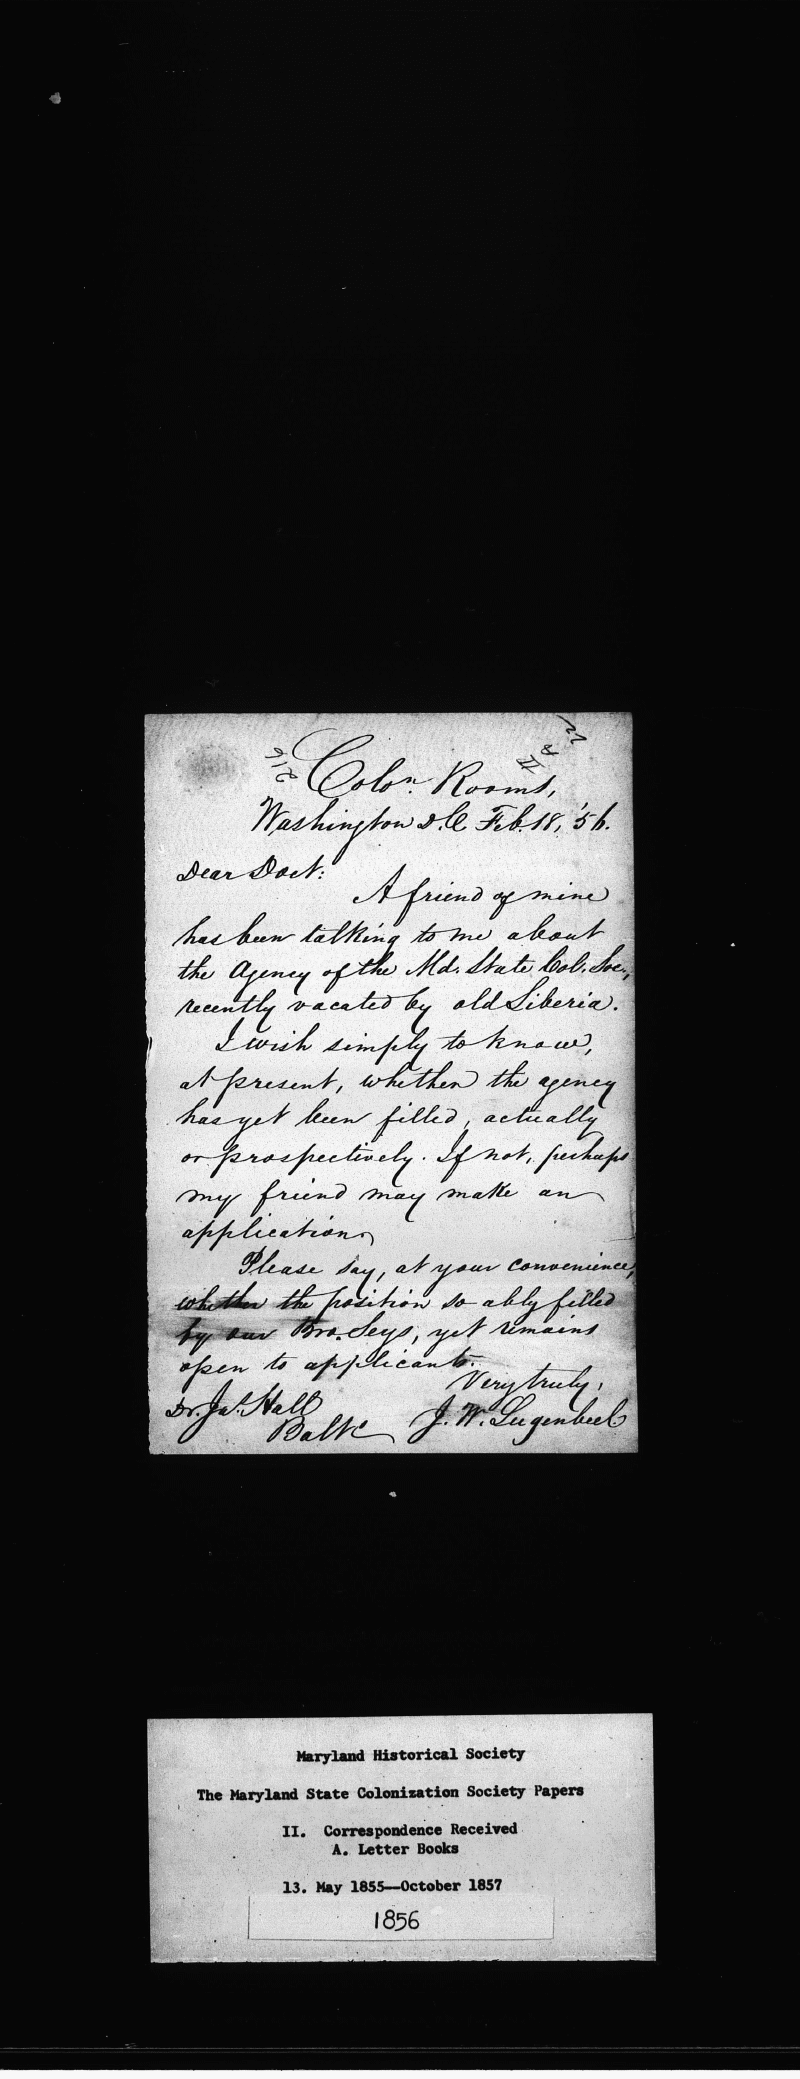 Colon. Rooms,
Washington D.C. Feb. 18, '56.
Dear Doct:
A friend of mine
has been talking to me about
the Agency of the Md. State Col. Soc.,
recently vacated by old Liberia.
I wish simply to know,
at present, whether the agency
has yet been filled, actually
or prospectively. If not, perhaps
my friend may make an
application.
Please say, at your convenience,
whether the position so ably filled
by our Bro. Seys, yet remains
open to applicants.
Very truly,
Dr. Jas. Hall
J. W. Lugenbeel
Balto
Maryland Historical Society
The Maryland State Colonization Society Papers
II. Correspondence Received
A. Letter Books
13. May 1855--October 1857
1856